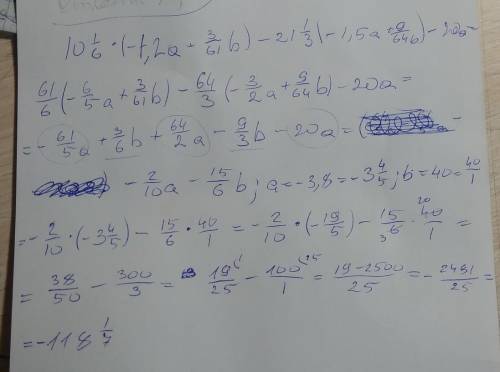 10 1/6 · (-1,2a + 3/61 b) - 21 1/3 (-1,5a + 9/64 b) - 20a =
61/6 (-6/5 a + 3/61 b) - 64/3 (-3/2 a + 9/64 b) - 20a =
= - 61/5 a + 3/6 b + 64/2 a - 9/3 b - 20a = -
- 2/10 a - 15/6 b ; a = -3,8 = -3 4/5 ; b = 40 = 40/1
= - 2/10 · (-3 4/5) - 15/6 · 40/1 = - 2/10 · (- 19/5) - 15/6 · 40/1 = 20 3
= 38/50 - 300/3 = 19/25 - 100/1 = 19-2500/25 = - 2481/25 =
= -118 1/7